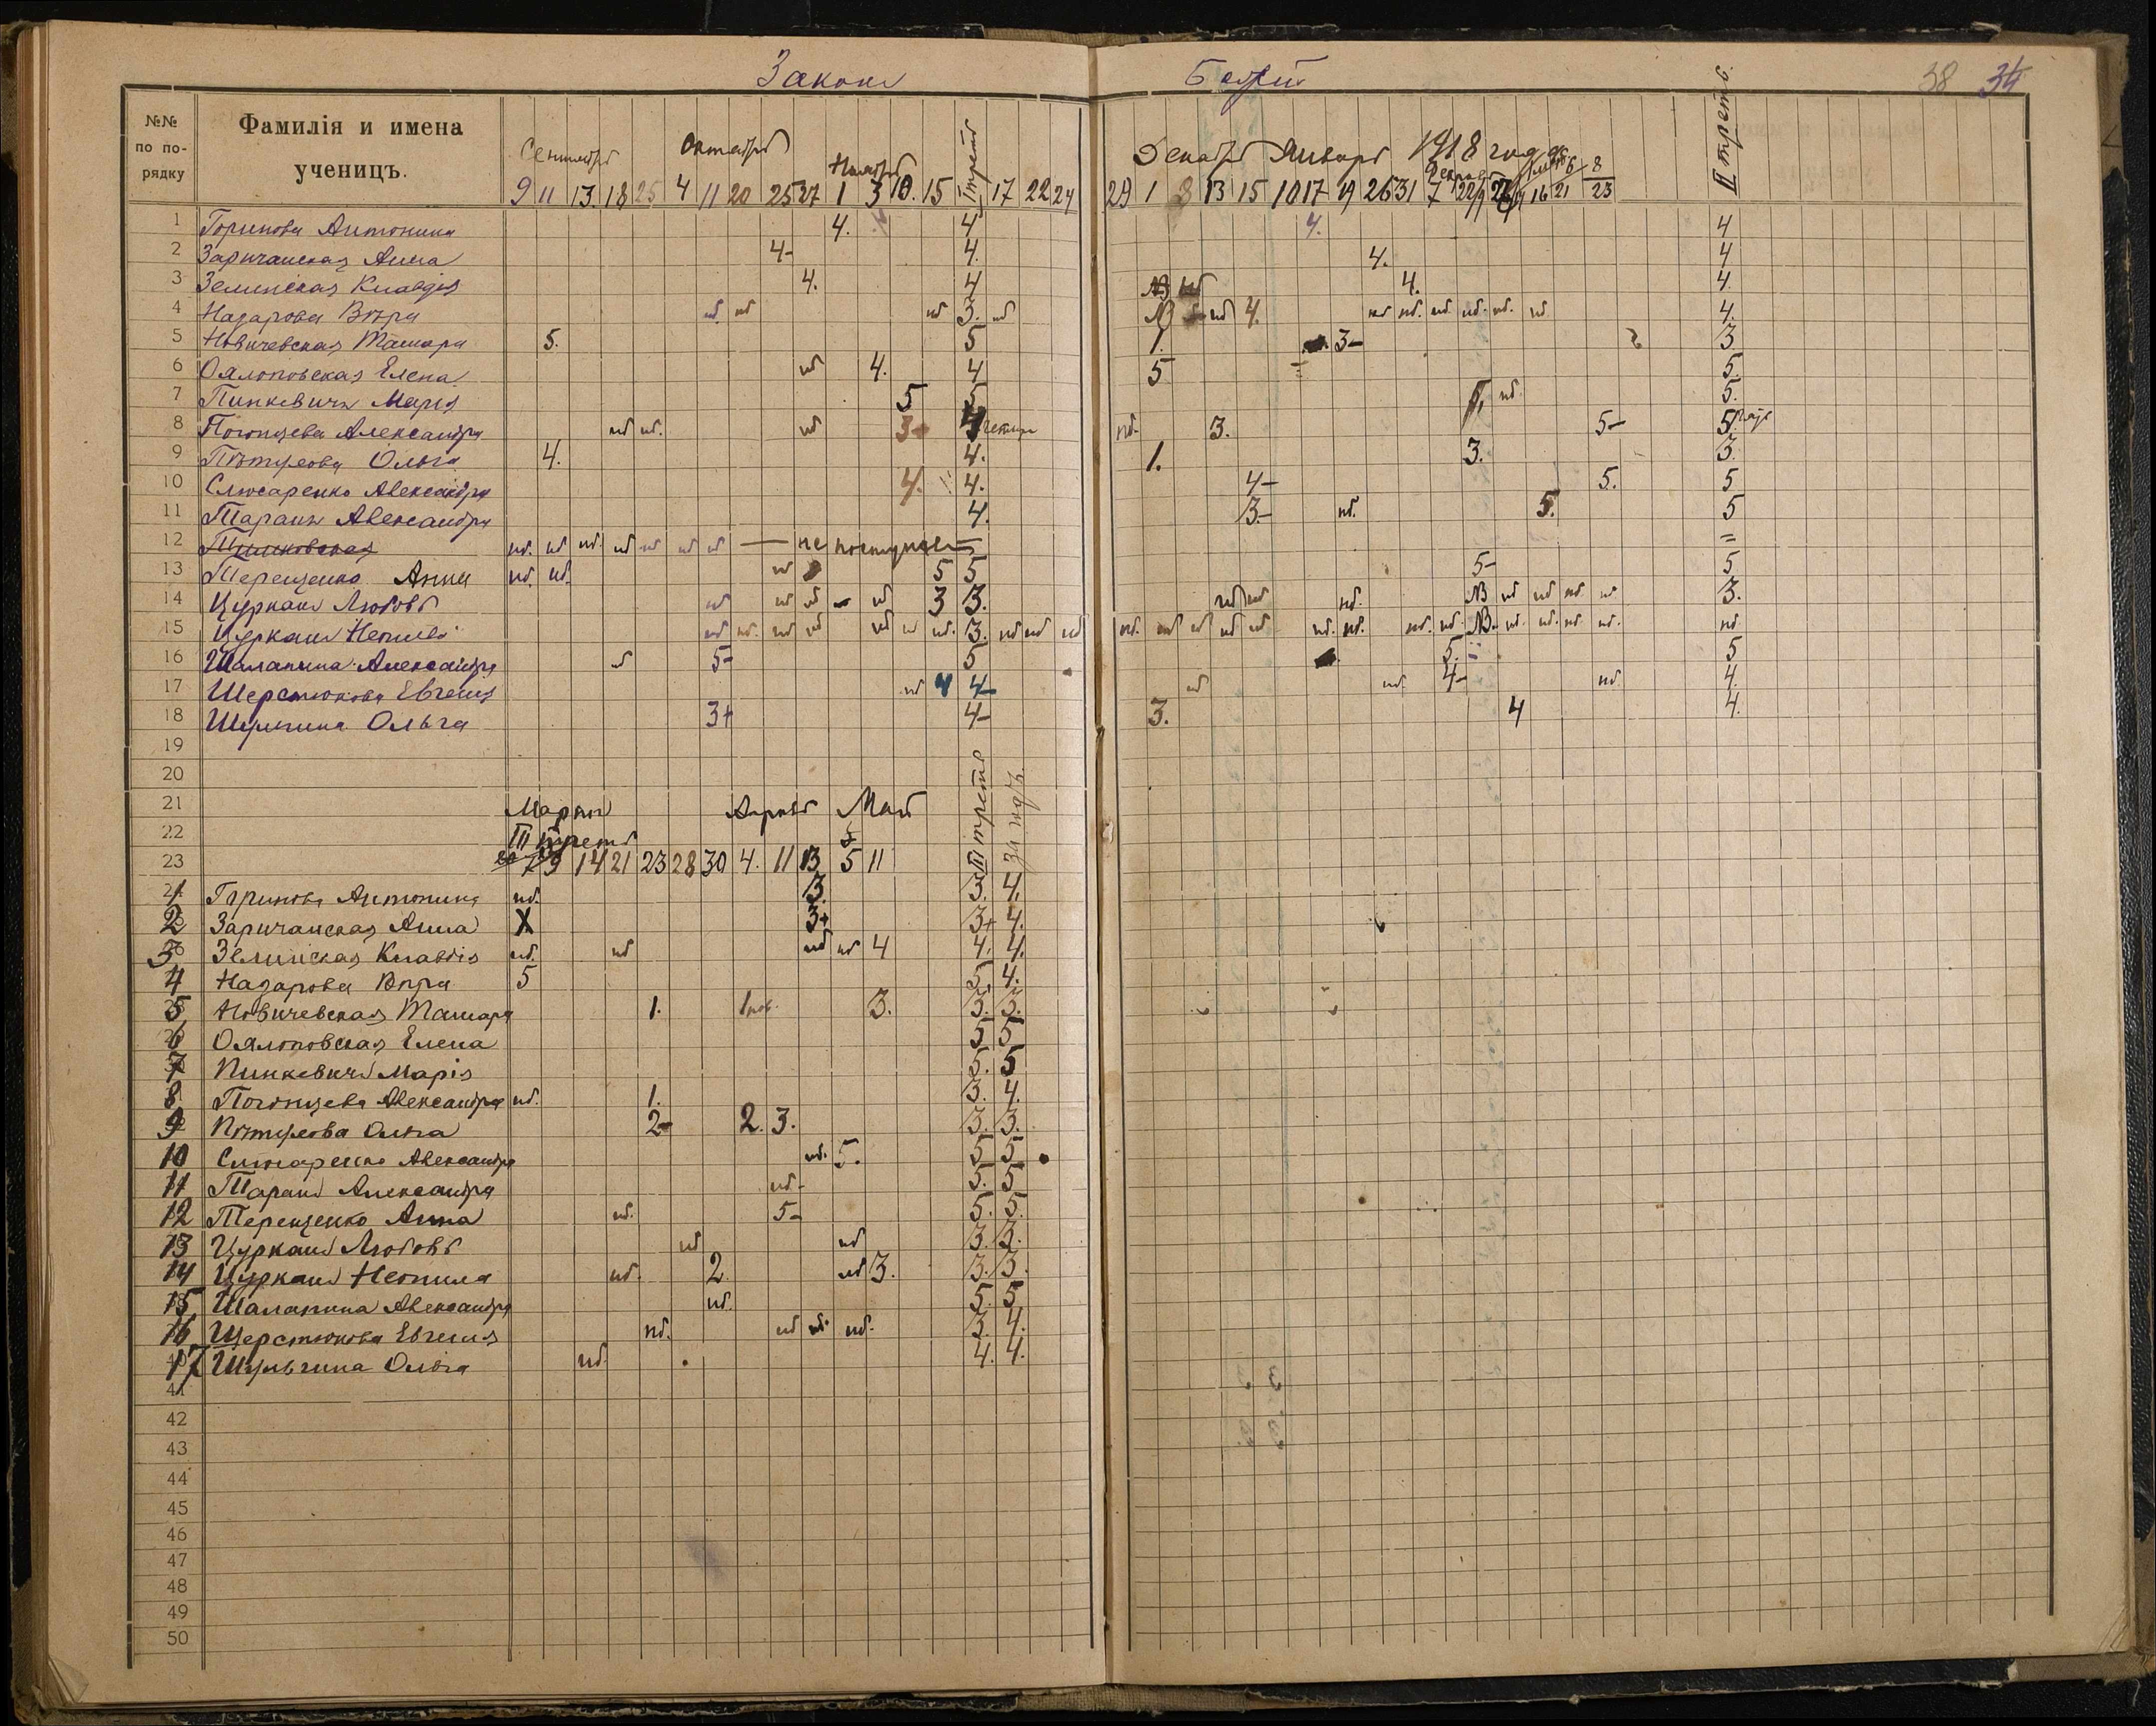 Законъ Божій 38 34
№№ по по-рядку
Фамилія и имена ученицъ.
Сентябрь Октябрь Ноябрь I треть
9 11 13. 18 25 4 11 20 25 27 1 3 10. 15 17 22 24
Декабрь Январь 1918 года II треть.
29 1 8 13 15 10 17 19 26 31 7 16 21 8 23
1 Горинова Антонина 4. 4 4. 4
2 Заричанская Анна 4- 4. 4. 4
3 Зелинская Клавдія 4. 4 4. 4.
4 Назарова Вѣра нб нб нб 3. нб нб 4. нб нб. нб. нб. нб. нб. 4.
5 Новичевская Тамара 5. 5 1. 3- 3
6 Оялоповская Елена нб 4. 4 5 5.
7 Пинкевичъ Марія 5 5 нб. 5.
8 Погонцева Александра нб нб. нб 3+ нб. 3. 5- 5
9 Пѣтухова Ольга 4. 4. 1. 3. 3.
10 Слюсаренко Александра 4. 4. 4- 5. 5
11 Таранъ Александра 4. 3- нб. 5. 5
12 нб. нб нб. нб нб нб нб — не поступает — =
13 Терещенко Анна нб. нб. нб 5 5 5- 5
14 Цурканъ Любовь нб нб нб нб 3 3. нб нб нб. нб нб нб нб 3.
15 Цурканъ Неонила нб нб. нб нб нб нб нб. 3. нб нб нб нб. нб нб нб нб нб. нб. нб. нб. нб. нб. нб. нб. нб
16 Шалапина Александра нб 5- 5 5. 5
17 Шерстюкова Евгенія нб 4 4- нб нб. 4- нб. 4.
18 Шульгина Ольга 3+ 4- 3. 4 4.
19
20
21 Мартъ Апрѣль Май
22 III треть III треть за годъ.
23 7 9 14 21 23 28 30 4. 11 13 5 11
1 Горинова Антонина нб. 3. 3. 4.
2 Заричанская Анна X 3+ 3+ 4.
3 Зелинская Клавдія нб. нб нб нб 4 4. 4.
4 Назарова Вѣра 5 5 4.
5 Новичевская Тамара 1. 3. 3. 3.
6 Оялоповская Елена 5 5
7 Пинкевичъ Марія 5. 5
8 Погонцева Александра нб. 1. 3. 4.
9 Пѣтухова Ольга 2- 2. 3. 3. 3.
10 Слюсаренко Александра нб. 5. 5 5
11 Таранъ Александра нб- 5. 5
12 Терещенко Анна нб. 5- 5. 5.
13 Цурканъ Любовь нб нб 3. 3.
14 Цурканъ Неонила нб. 2. нб 3. 3. 3.
15 Шалапина Александра нб. 5. 5
16 Шерстюкова Евгенія нб. нб нб. нб. 3. 4.
17 Шульгина Ольга нб. 4. 4.
41
42
43
44
45
46
47
48
49
50